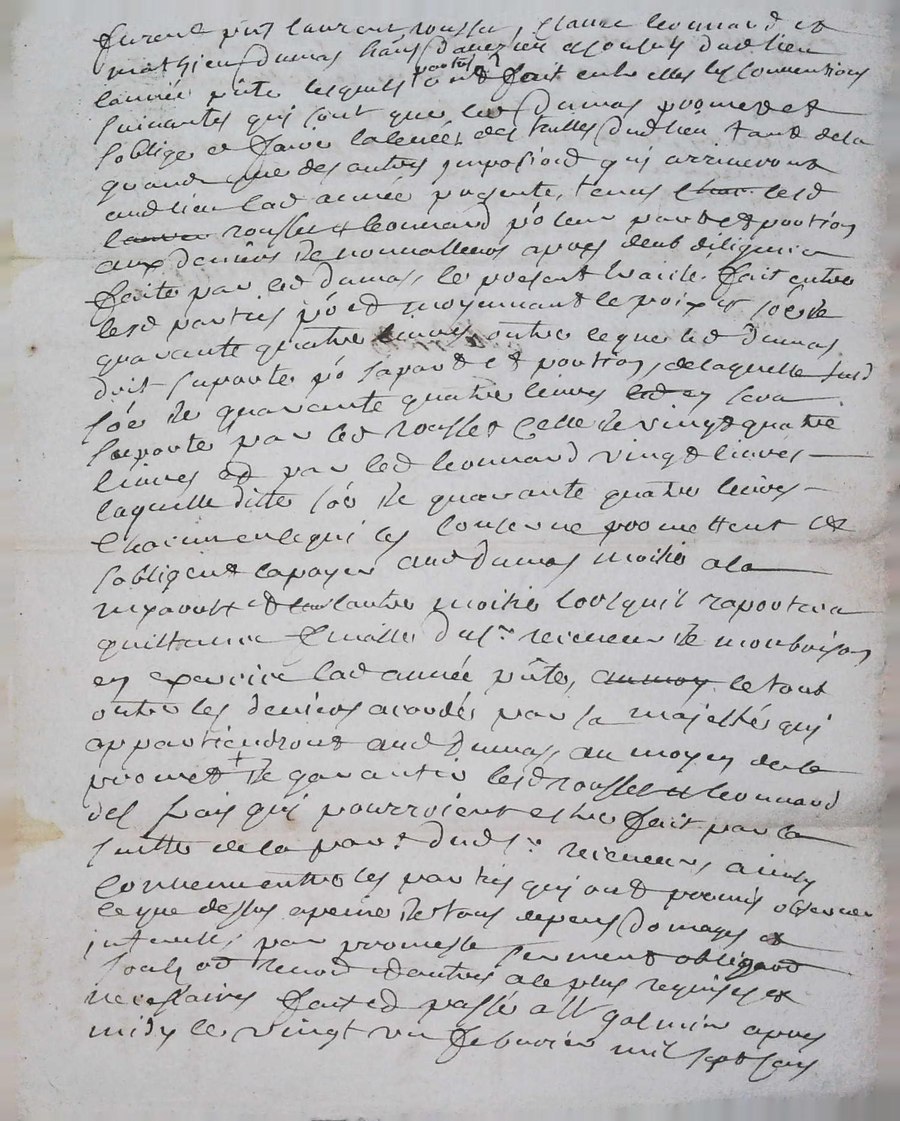 furent pnt laurent rousset, Claude leonnard et
mathieu dumas habts d'auezieu assouls dud lieu
lannée pnte lesquels parties ont fait entre elles les conuentions
suiuantes qui sont que led dumas promet et
soblige de faire la leuée des tailles dud lieu tant de la
grande que des autres impositions qui arriueront
aud lieu lad année presente, tenus lesd
rousset et leonnard po leur part et portion
aux deniers de nonualleurs apres deub diligence
faite par led dumas, le present traicté fait entre
lesd parties po et moyennant le prix et soe de
quarante quatre liures outre ce que led dumas
doit suporter po sa part et portion, de laquelle susd
soe de quarante quatre liures en sera
suporte par led rousset celle de vingt quatre
liures et par led leonnard vingt liures
laquelle ditte soe de quarante quatre liures
chacun en ce qui les conserne promettent et
sobligent la payer aud dumas moitié a la
my aoust et lautre moitié lors quil raportera
quittance finalle du sr. receueur de monbrison
en exercice lad année pnte, le tout
outre les deniers acordés par sa majesté qui
appartiendront aud dumas, au moyen de ce
promet de garantir lesd rousset et leonnard
des frais qui pourroient estre fait par la
suitte de la part dud sr. receueur, ainsy
conuenu entre les parties qui ont promis obseruer
ce que dessus a peine de tous depens domages et
interests, par promesse serment obligaod
soubz et renod et autres a le plus requises et
necessaires fait et passé a St galmier apres
midy le vingt un febvrier mil sept cens